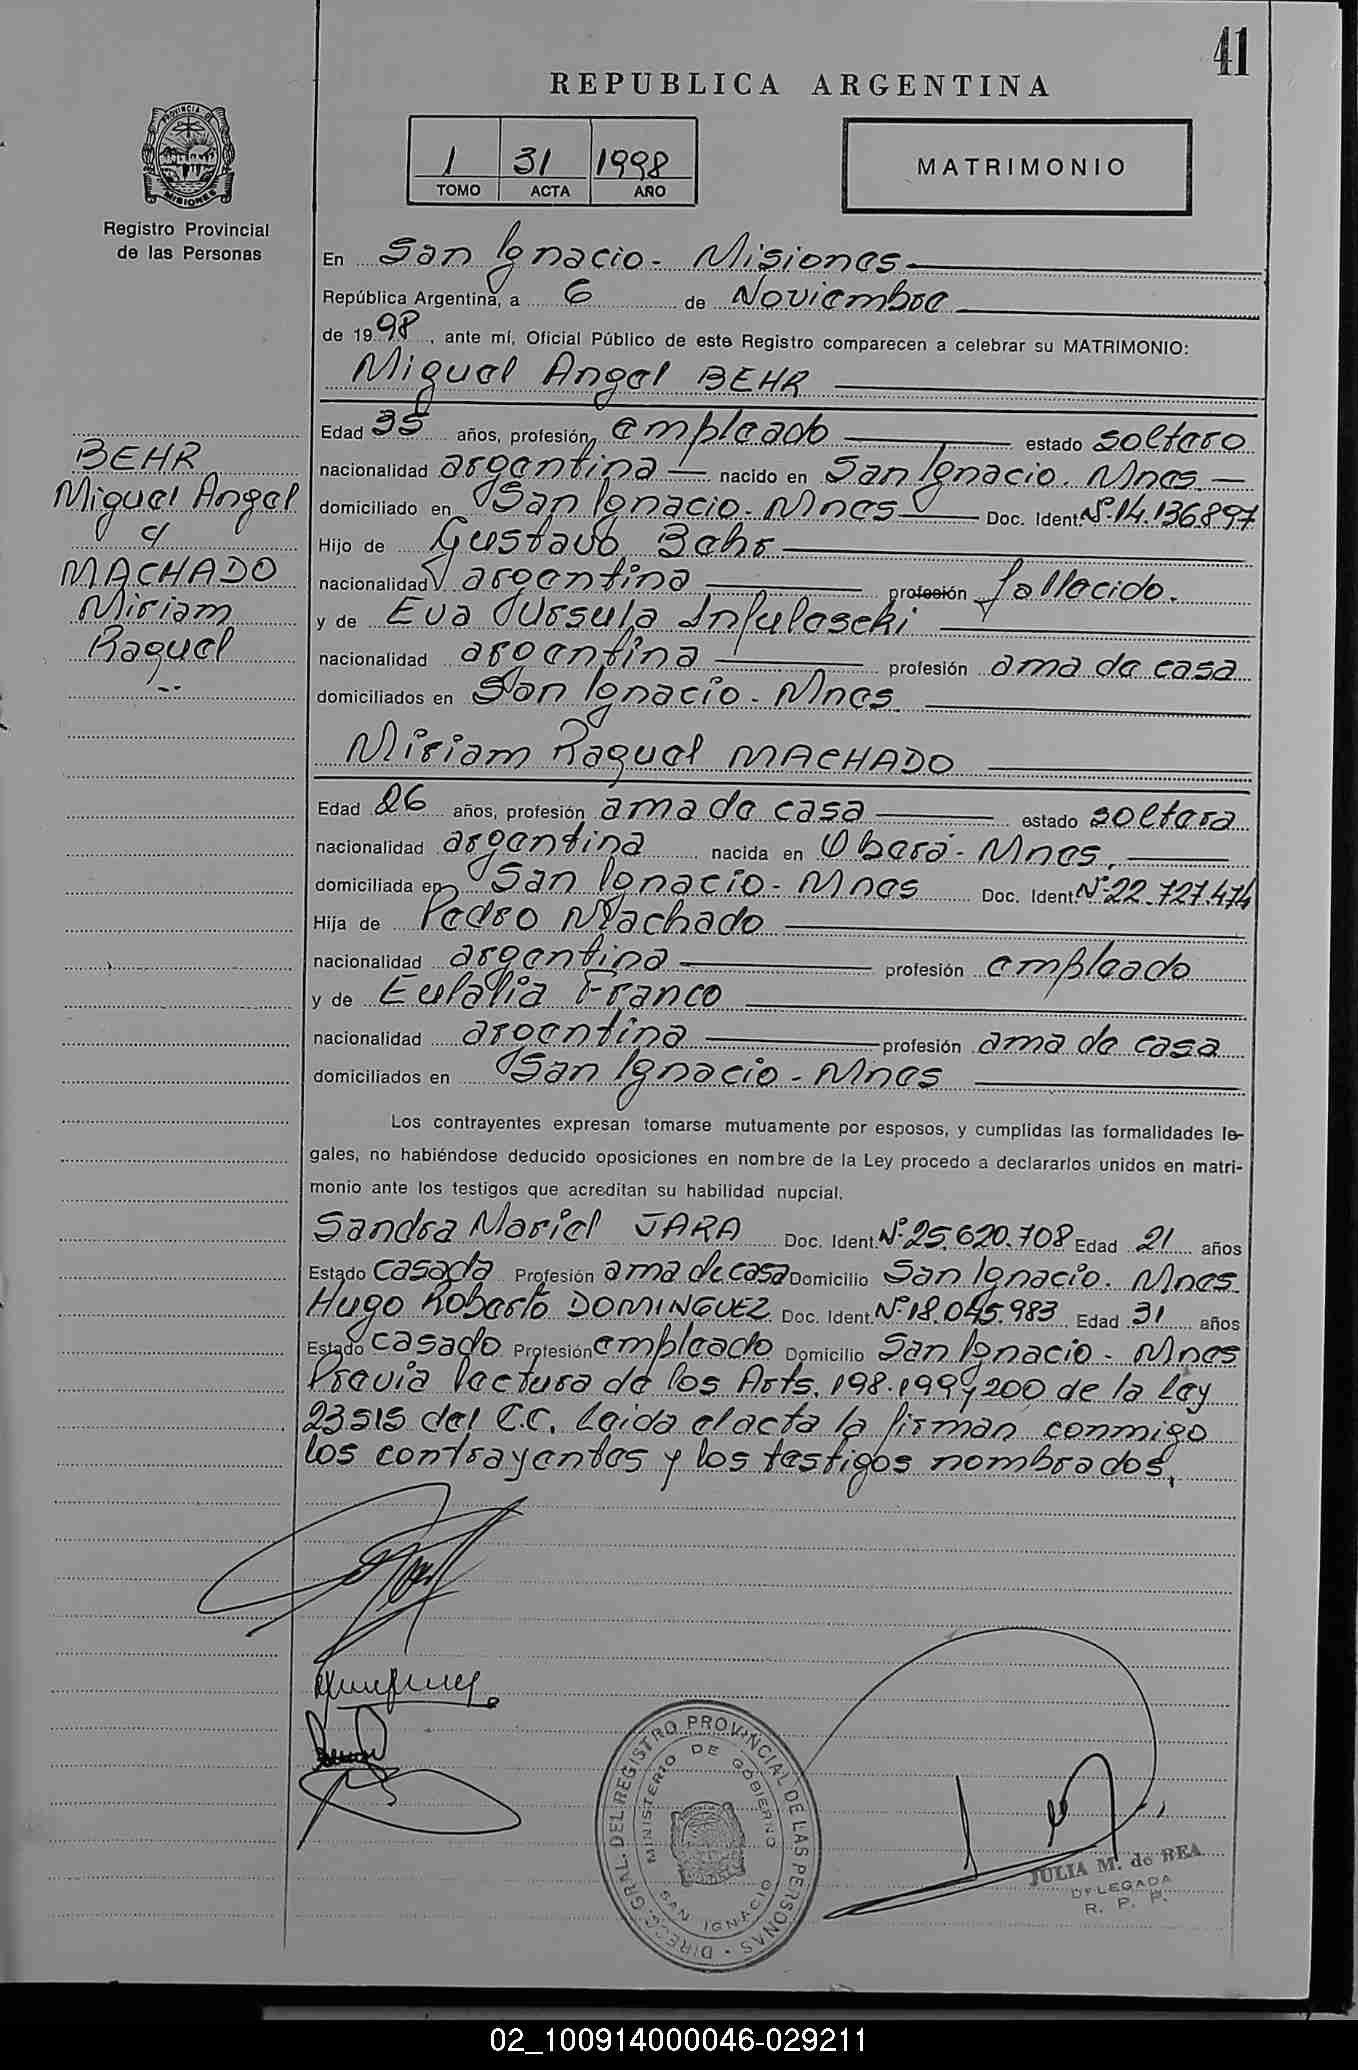 41
REPUBLICA ARGENTINA
PROVINCIA DE MISIONES
Registro Provincial
de las Personas
1 31 1998
TOMO ACTA AÑO
MATRIMONIO
En San Ignacio - Misiones
República Argentina, a 6 de Noviembre
de 1998, ante mí, Oficial Público de este Registro comparecen a celebrar su MATRIMONIO:
Miguel Angel BEHR
BEHR
Miguel Angel
c/
MACHADO
Miriam
Raquel
Edad 35 años, profesión empleado estado soltero
nacionalidad argentina nacido en San Ignacio. Mnes.
domiciliado en San Ignacio - Mnes Doc. Ident. Nº 14.136.897
Hijo de Gustavo Behr
nacionalidad argentina profesión fallecido.
y de Eva Ursula Infuleseki
nacionalidad argentina profesión ama de casa
domiciliados en San Ignacio - Mnes.
Miriam Raquel MACHADO
Edad 26 años, profesión ama de casa estado soltera
nacionalidad argentina nacida en Oberá - Mnes.
domiciliada en San Ignacio - Mnes Doc. Ident. Nº 22.727.474
Hija de Pedro Machado
nacionalidad argentina profesión empleado
y de Eulalia Franco
nacionalidad argentina profesión ama de casa
domiciliados en San Ignacio - Mnes
Los contrayentes expresan tomarse mutuamente por esposos, y cumplidas las formalidades le-
gales, no habiéndose deducido oposiciones en nombre de la Ley procedo a declararlos unidos en matri-
monio ante los testigos que acreditan su habilidad nupcial.
Sandra Mariel JARA Doc. Ident. Nº 25.620.708 Edad 21 años
Estado casada Profesión ama de casa Domicilio San Ignacio. Mnes.
Hugo Roberto DOMINGUEZ Doc. Ident. Nº 18.045.983 Edad 31 años
Estado casado Profesión empleado Domicilio San Ignacio - Mnes
Previa lectura de los Arts. 198.199 y 200 de la Ley
23515 del C.C. Leida el acta la firman conmigo
los contrayentes y los testigos nombrados.
DIRECC. GRAL. DEL REGISTRO PROVINCIAL DE LAS PERSONAS
MINISTERIO DE GOBIERNO
SAN IGNACIO
JULIA M. de REA
DELEGADA
R. P. P.
02_100914000046-029211